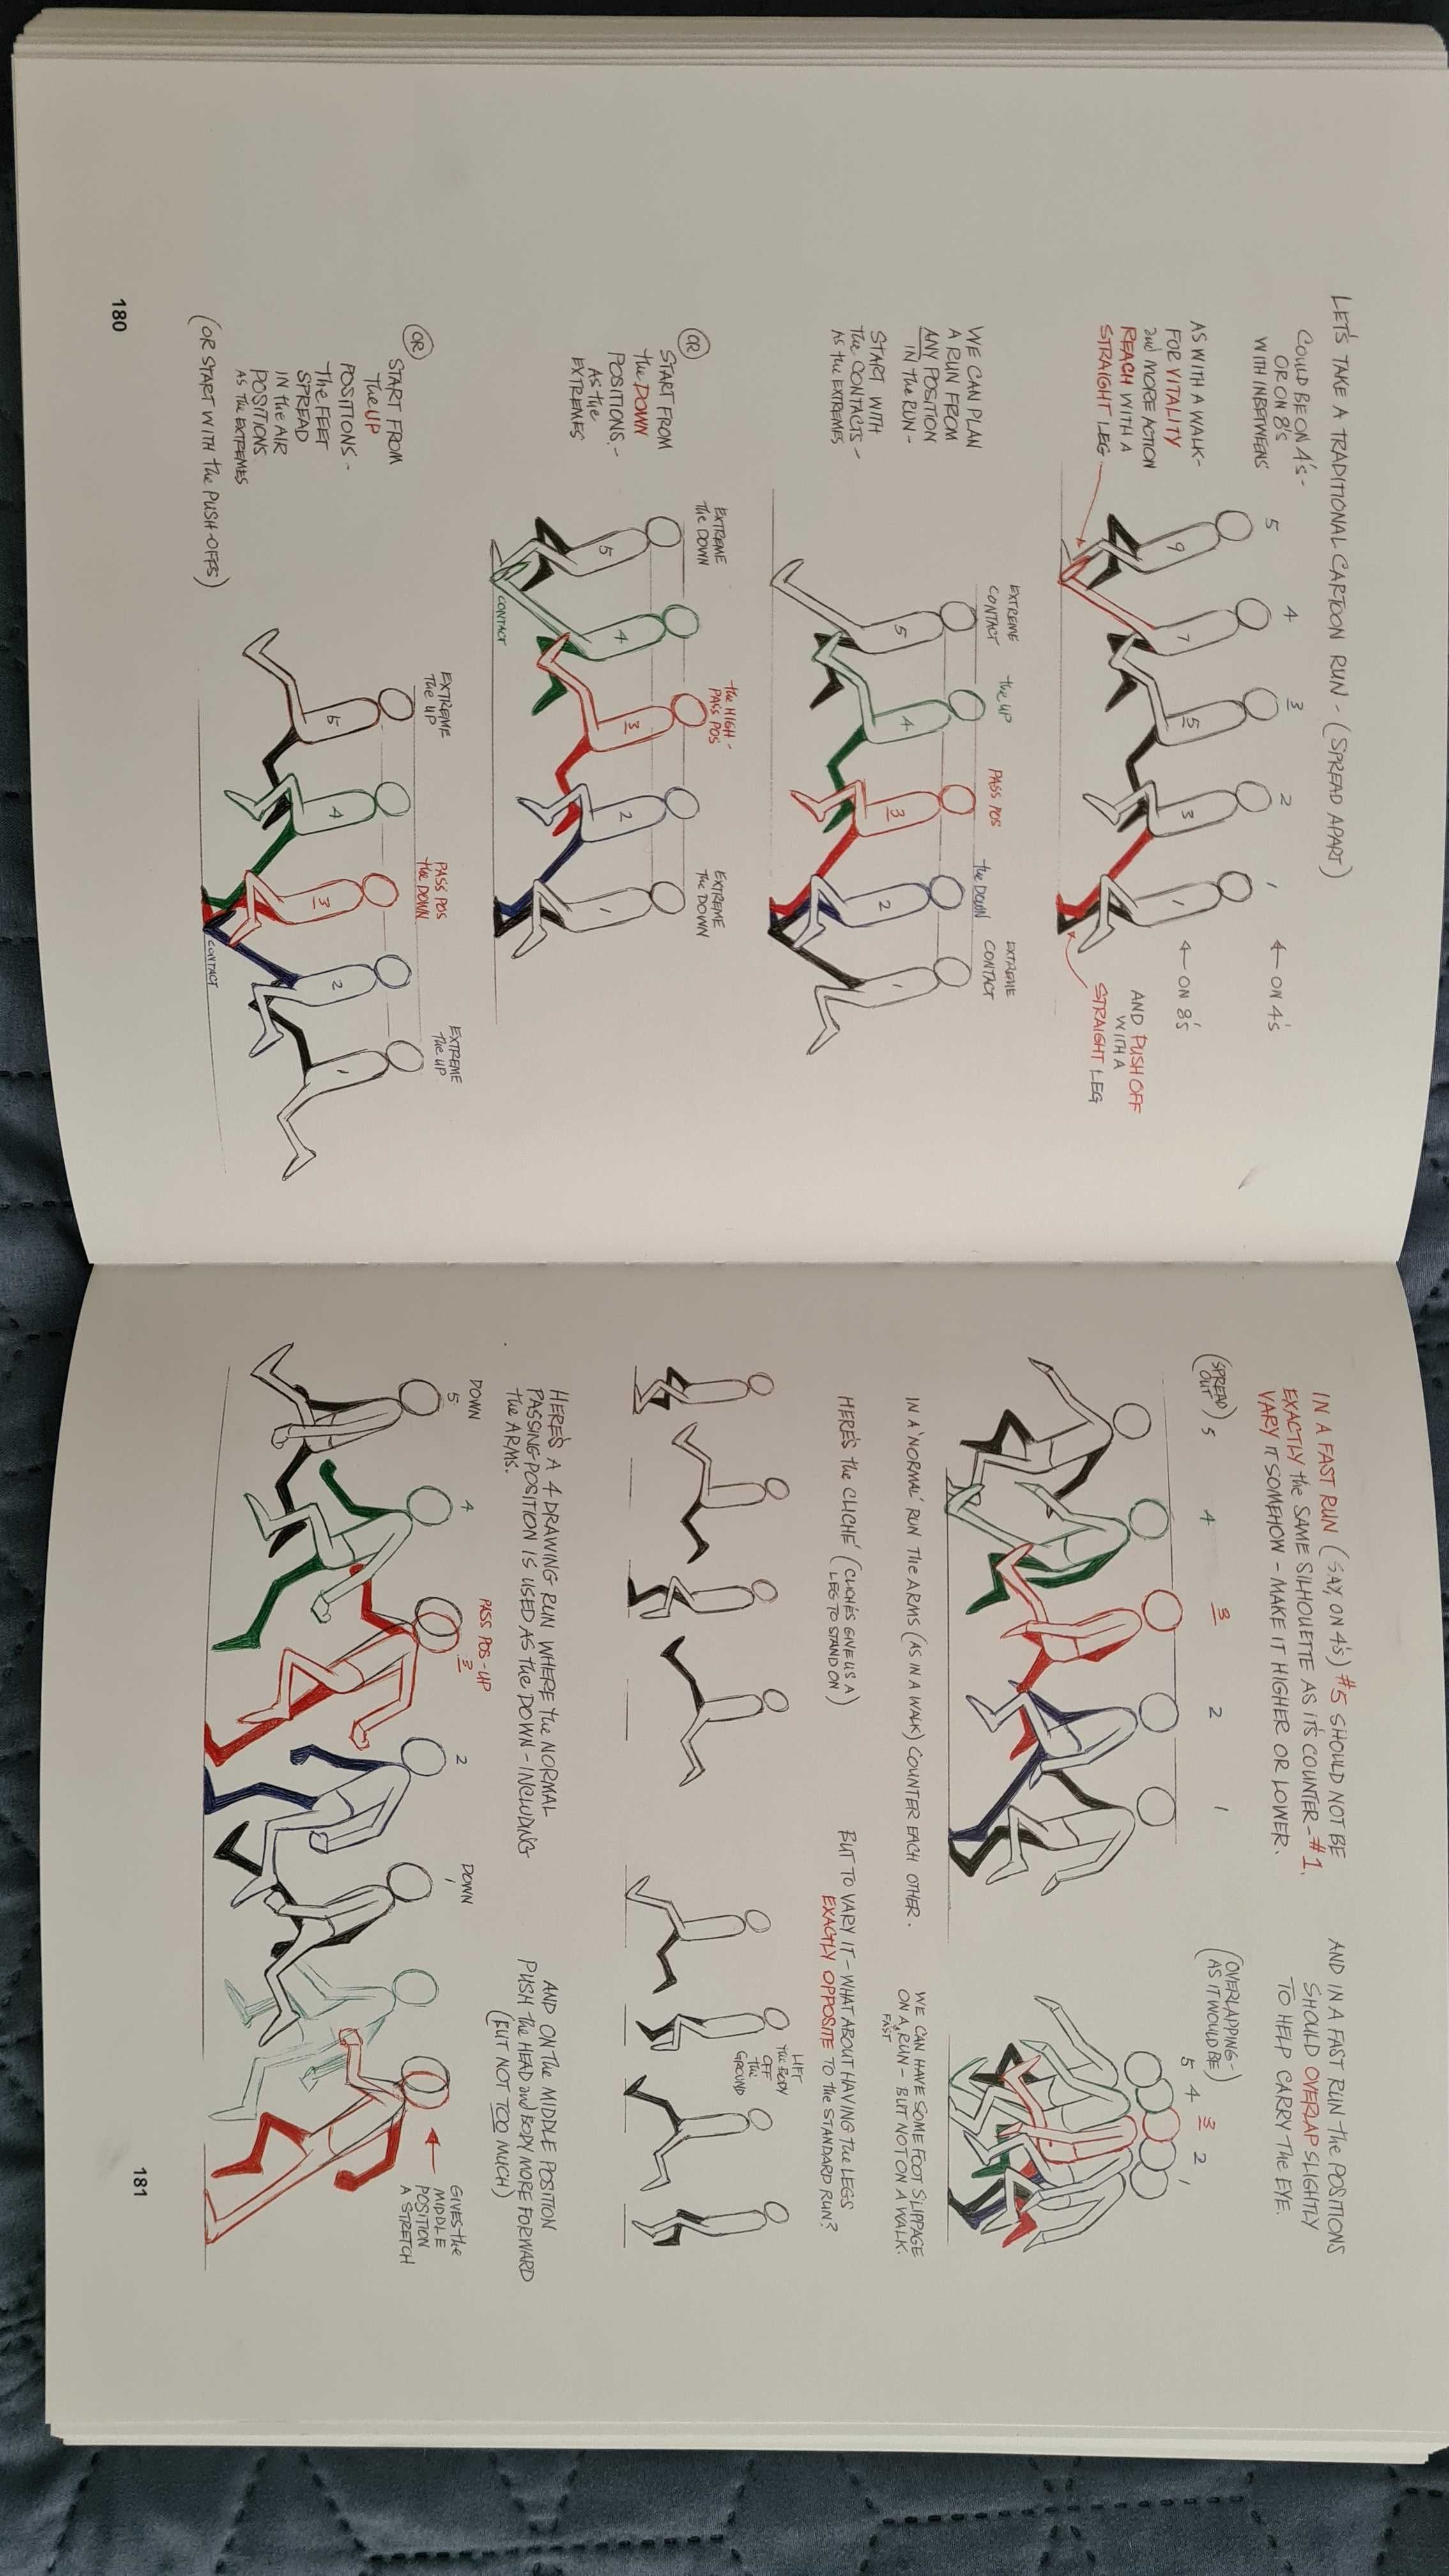 LET'S TAKE A TRADITIONAL CARTOON RUN - (SPREAD APART)
COULD BE ON 4's -
OR ON 8's
WITH INBETWEENS
5 4 3 2 1
4 ← ON 4's
4 ← ON 8's
9 7 5 3 1
AS WITH A WALK -
FOR VITALITY
and MORE ACTION
REACH WITH A
STRAIGHT LEG
AND PUSH OFF
WITH A
STRAIGHT LEG
WE CAN PLAN
A RUN FROM
ANY POSITION
IN the RUN -
START WITH
the CONTACTS -
AS the EXTREMES
EXTREME
CONTACT
the UP
PASS POS
the DOWN
EXTREME
CONTACT
5 4 3 2 1
OR
START FROM
the DOWN
POSITIONS -
AS the
EXTREMES
EXTREME
the DOWN
the HIGH -
PASS POS
EXTREME
the DOWN
5 4 3 2 1
CONTACT
OR
START FROM
the UP
POSITIONS -
the FEET
SPREAD
IN the AIR
POSITIONS
AS the EXTREMES
(OR START WITH the PUSH-OFFS)
EXTREME
the UP
PASS POS
the DOWN
EXTREME
the UP
5 4 3 2 1
CONTACT
180
IN A FAST RUN (SAY, ON 4's) #5 SHOULD NOT BE
EXACTLY the SAME SILHOUETTE AS IT'S COUNTER - #1.
VARY IT SOMEHOW - MAKE IT HIGHER OR LOWER.
AND IN A FAST RUN the POSITIONS
SHOULD OVERLAP SLIGHTLY
TO HELP CARRY the EYE.
(SPREAD
OUT)
5 4 3 2 1
(OVERLAPPING -
AS IT WOULD BE)
5 4 3 2 1
IN A 'NORMAL' RUN the ARMS (AS IN A WALK) COUNTER EACH OTHER.
WE CAN HAVE SOME FOOT SLIPPAGE
ON A FAST RUN - BUT NOT ON A WALK.
HERE'S the CLICHÉ (CLICHÉS GIVE US A
LEG TO STAND ON)
BUT TO VARY IT - WHAT ABOUT HAVING the LEGS
EXACTLY OPPOSITE TO the STANDARD RUN?
LIFT
the BODY
OFF
the
GROUND
HERE'S A 4 DRAWING RUN WHERE the NORMAL
PASSING-POSITION IS USED AS the DOWN - INCLUDING
the ARMS.
AND ON the MIDDLE POSITION
PUSH the HEAD and BODY MORE FORWARD
(BUT NOT TOO MUCH)
DOWN
5
4
PASS POS - UP
3
2
DOWN
1
GIVES the
MIDDLE
POSITION
A STRETCH
181